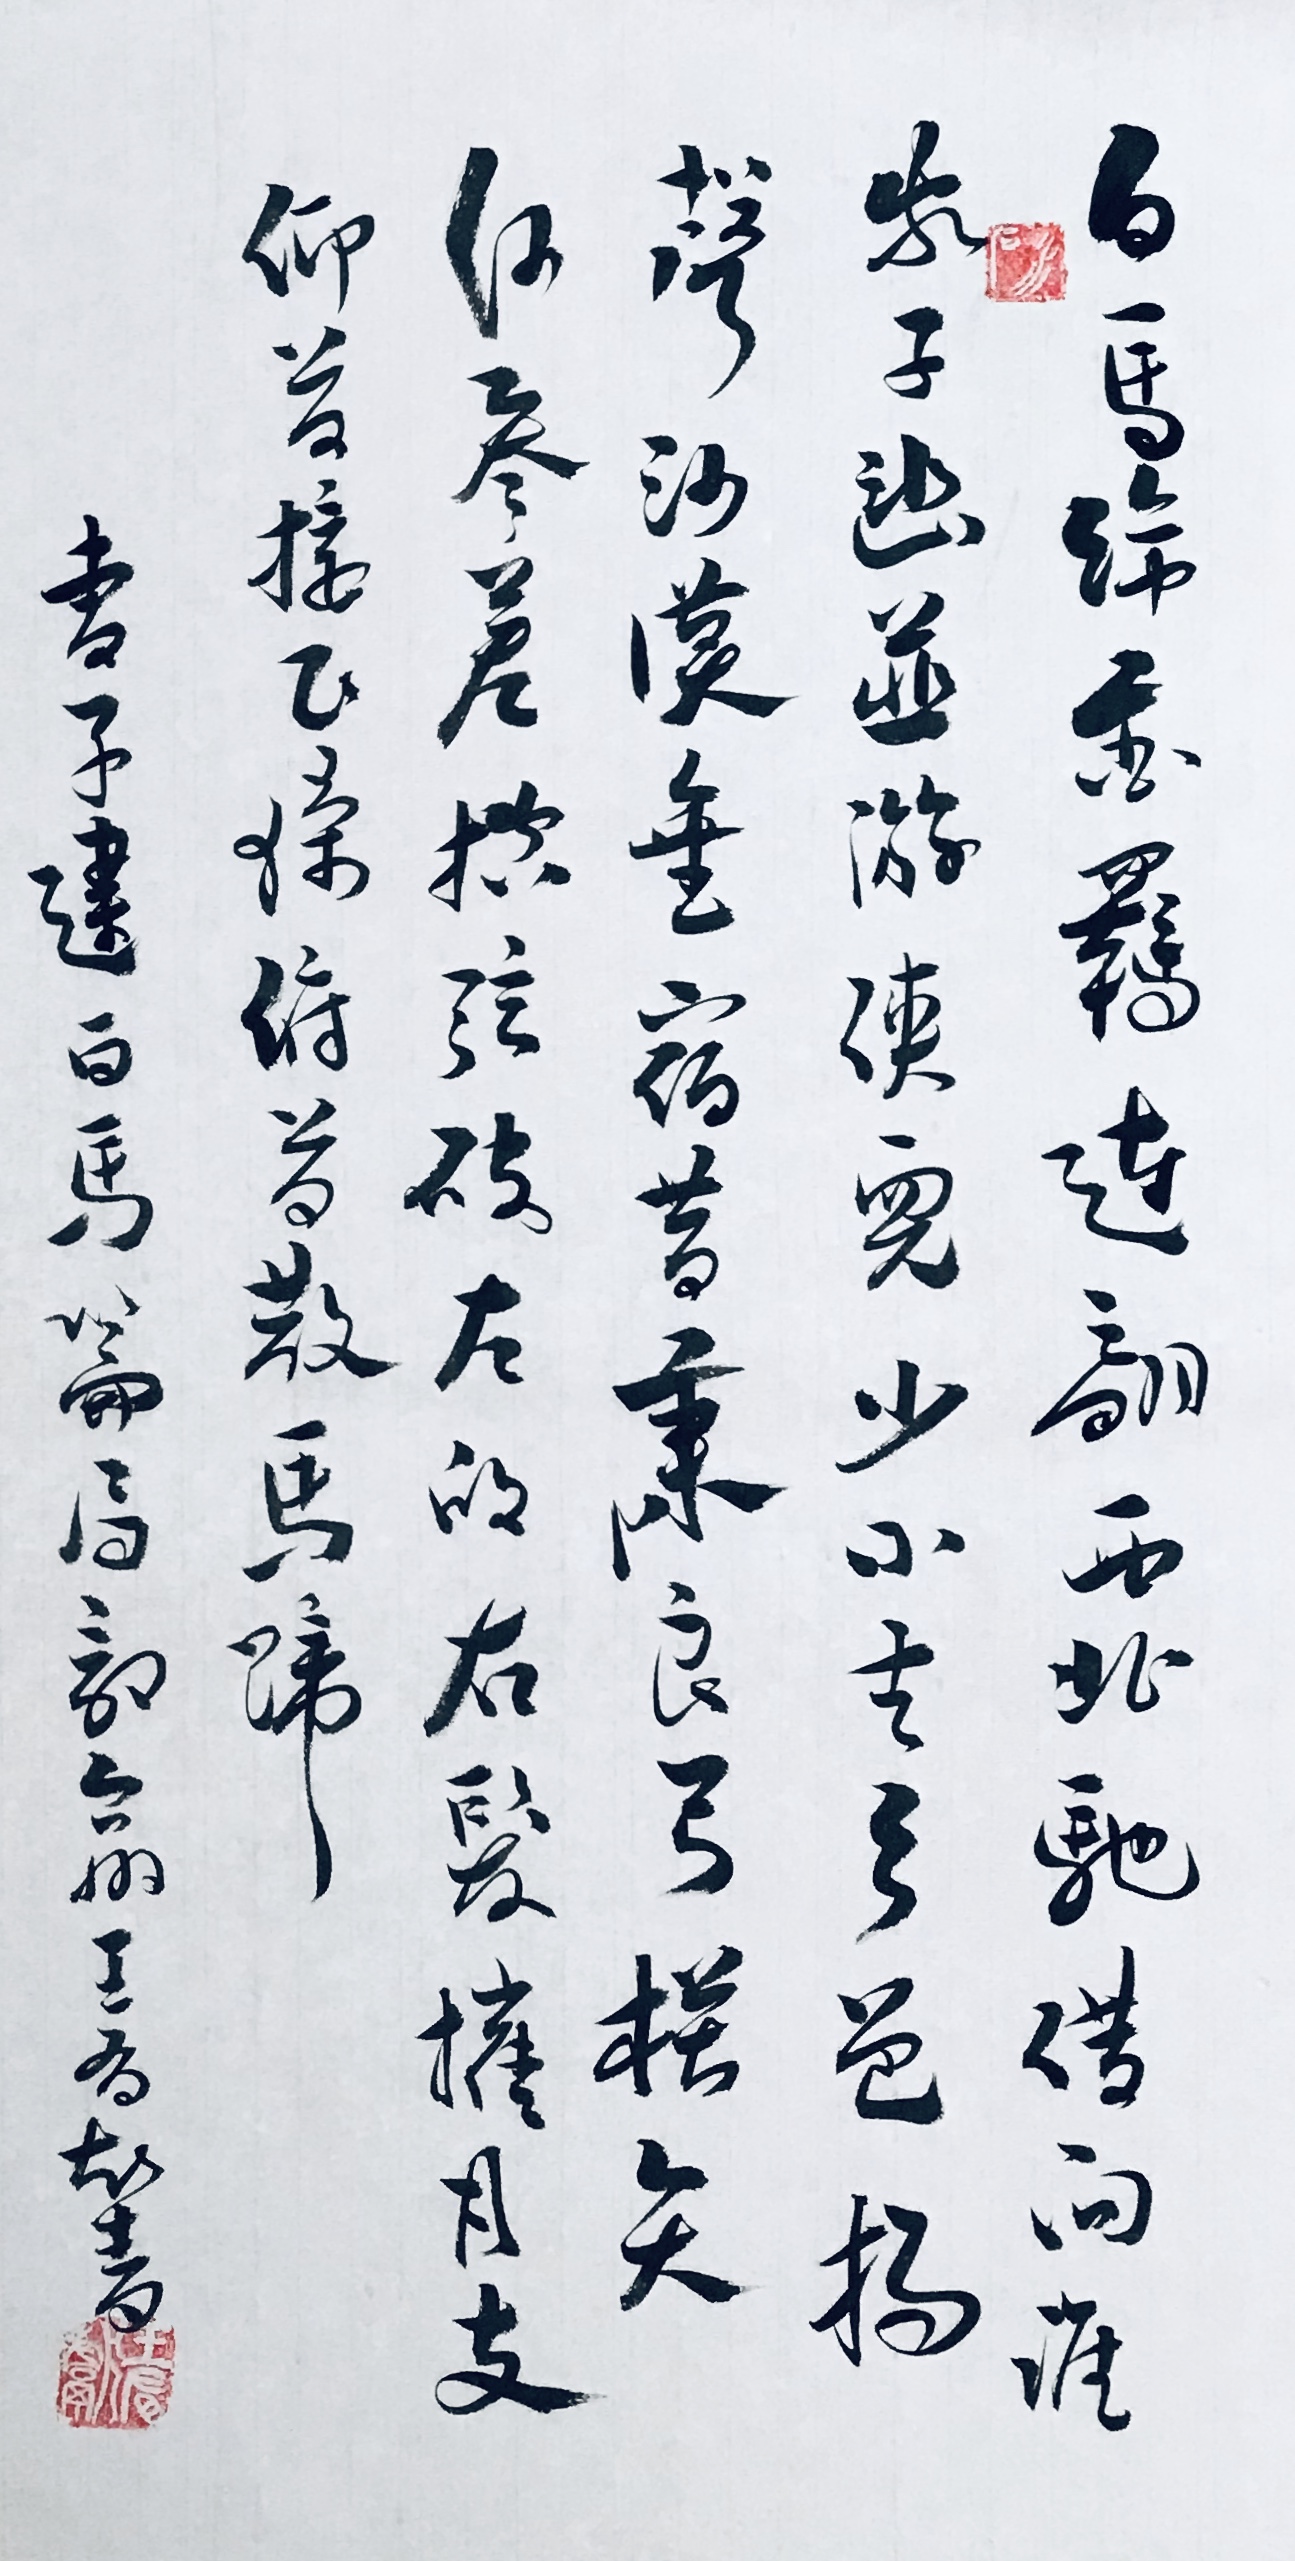 白馬飾金羈連翩西北馳借問誰
家子幽並游俠兒少小去鄉邑揚
聲沙漠垂宿昔秉良弓楛矢
何參差控弦破左的右發摧月支
仰首接飛猱俯首散馬蹄
書子建白馬篇局部 王 書